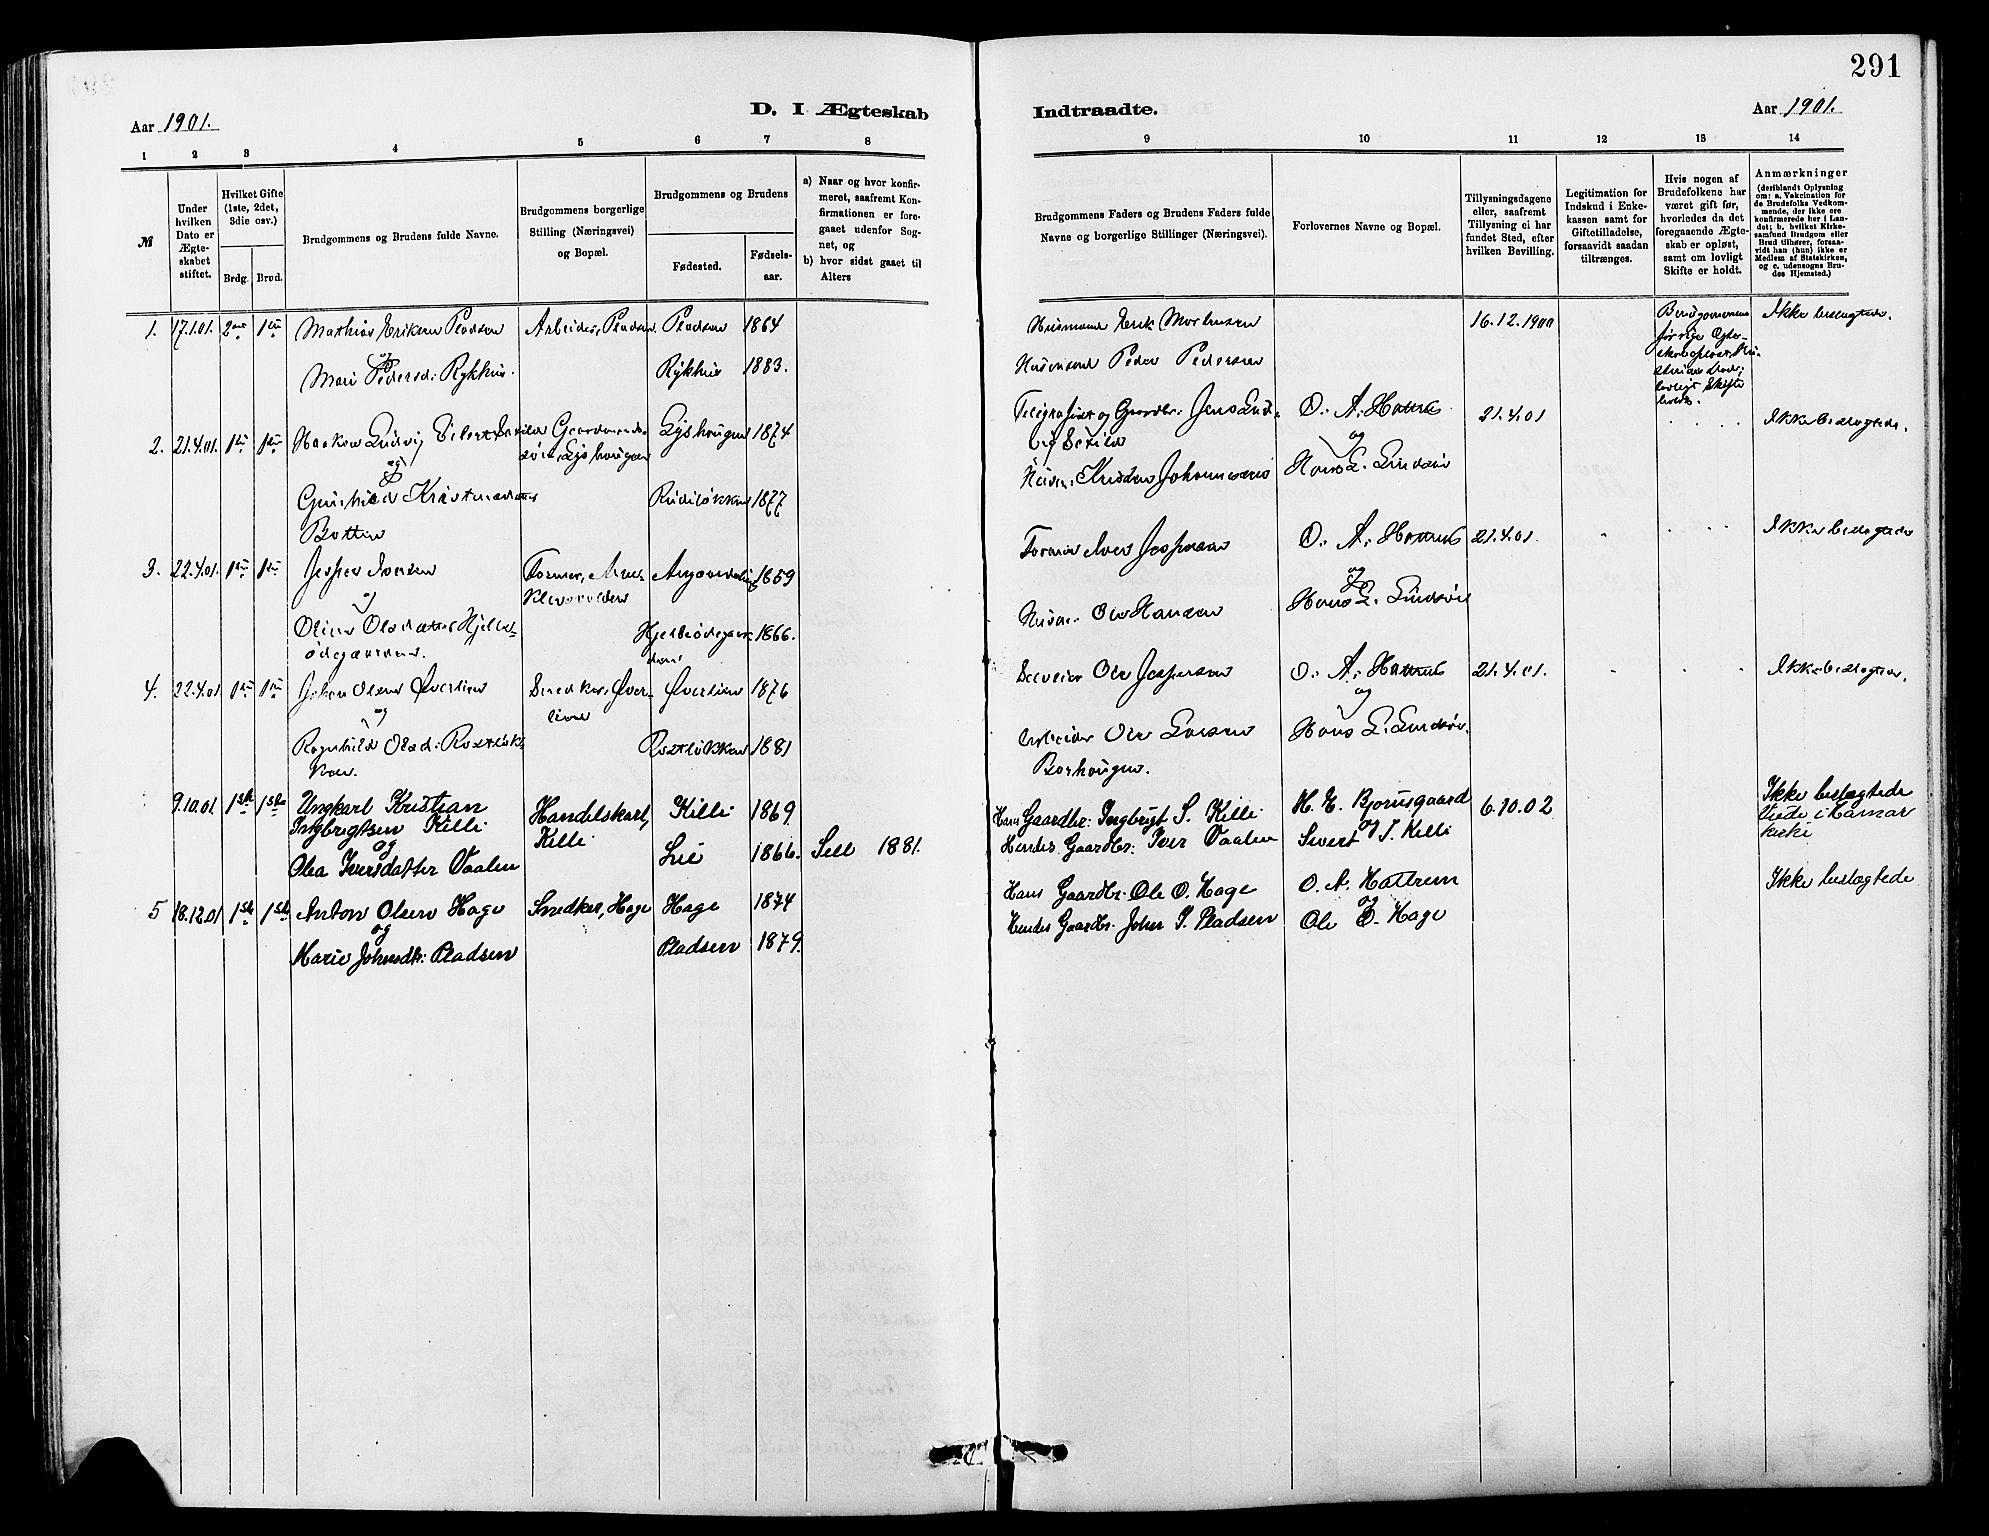 291
D. I Ægteskab Indtraadte.
Aar 1901.
Aar 1901.
1 2 3 4 5 6 7 8 9 10 11 12 13 14
№
Under
hvilken
Dato er
Ægte-
skabet
stiftet.
Hvilket Gifte
(1ste, 2det,
3die osv.)
Brdg. Brud.
Brudgommens og Brudens fulde Navne.
Brudgommens borgerlige
Stilling (Næringsvei)
og Bopæl.
Brudgommens og Brudens
Fødested.
Fødsels-
aar.
a) Naar og hvor konfir-
meret, saafremt Kon-
firmationen er fore-
gaaet udenfor Sog-
net, og
b) hvor sidst gaaet til
Alters
Brudgommens Faders og Brudens Faders fulde
Navne og borgerlige Stillinger (Næringsvei).
Forlovernes Navne og Bopæl.
Tillysningsdagene
eller, saafremt
Tillysning ei har
fundet Sted, efter
hvilken Bevilling.
Legitimation for
Indskud i Enke-
kassen samt for
Giftetilladelse,
forsaavidt saadan
tiltrænges.
Hvis nogen af
Brudefolkene har
været gift før,
hvorledes da det
foregaaende Ægte-
skab er opløst,
samt om lovligt
Skifte er holdt.
Anmærkninger
(deriblandt Oplysning
om: a. Vakcination for
de Brudefolks Vedkom-
mende, der ikke ere
konfirmerede her i Lan-
det; b. hvilket Kirke-
samfund Brudgom eller
Brud tilhører, forsaa-
vidt han (hun) ikke er
Medlem af Statskirken,
og c. udensogns Bru-
des Hjemsted.)
1. 17.1.01. Mathias Eriksen Pladsen Arbeider, Pladsen Pladsen 1864
og
Mari Pedersd: Rykhus. Rykhus 1883.
Husmand Erik Mathisen 16.12.1900
Husmand Peder Pedersen
Brudgommens
forrige Ægte-
lovligt Skifte
holdt.
Ikke beslægtede.
2. 21.4.01. Haakon Ludvig Lyshaugen 1874
og
Gunhild Kristiansdatter Rudiløkken 1877
Telegrafist og Gaardbr. Jens Lud-
vig
Kristian Johannessen
O. A. Hattrem
og
Hans L. Lindsøe
21.4.01
Ikke beslægtede.
3. 22.4.01. Jesper Iversen Former, 1859
og
Oline Olsdatter Hjelts-
ødegaarden. 1866.
Former Iver Jespersen
Ole Hansen
O. A. Hattrem
og
Hans L. Lindsøe
21.4.01.
Ikke beslægtede
4. 22.4.01 Johan Olsen Øverlien Snedker, Øver-
lien Øverlien 1876
og
Ragnhild Olsd: Rostløk-
ken. Rostløkken 1881
Ole Jespersen
Arbeider Ole Larsen
Borhaugen.
O. A. Hattrem
og
Hans L. Lindsøe.
21.4.01.
Ikke beslægtede.
9.10.01. 1ste 1ste Ungkarl Kristian
Ingbrigtsen Killi
og
Olea Iversdatter Vaalen
Handelskarl,
Killi
Killi 1869
Lie 1866. Sell 1881.
Hans Gaardbr: Ingbrigt S. Killi
Hendes Gaardbr: Iver Vaalen
H. E. Bjørnsgaard
og
Sivert I. Killi
6.10.02
Ikke beslægtede
Viede i Hamar
kirke
5 18.12.01 1ste 1ste Anton Olsen Hage Snedker, Hage Hage 1874
og
Marie Johnsdt: Pladsen Pladsen 1879.
Hans Gaardbr. Ole O. Hage
Hendes Gaardbr. John I. Pladsen
O. A. Hattrem
og
Ole O. Hage
Ikke beslægtede